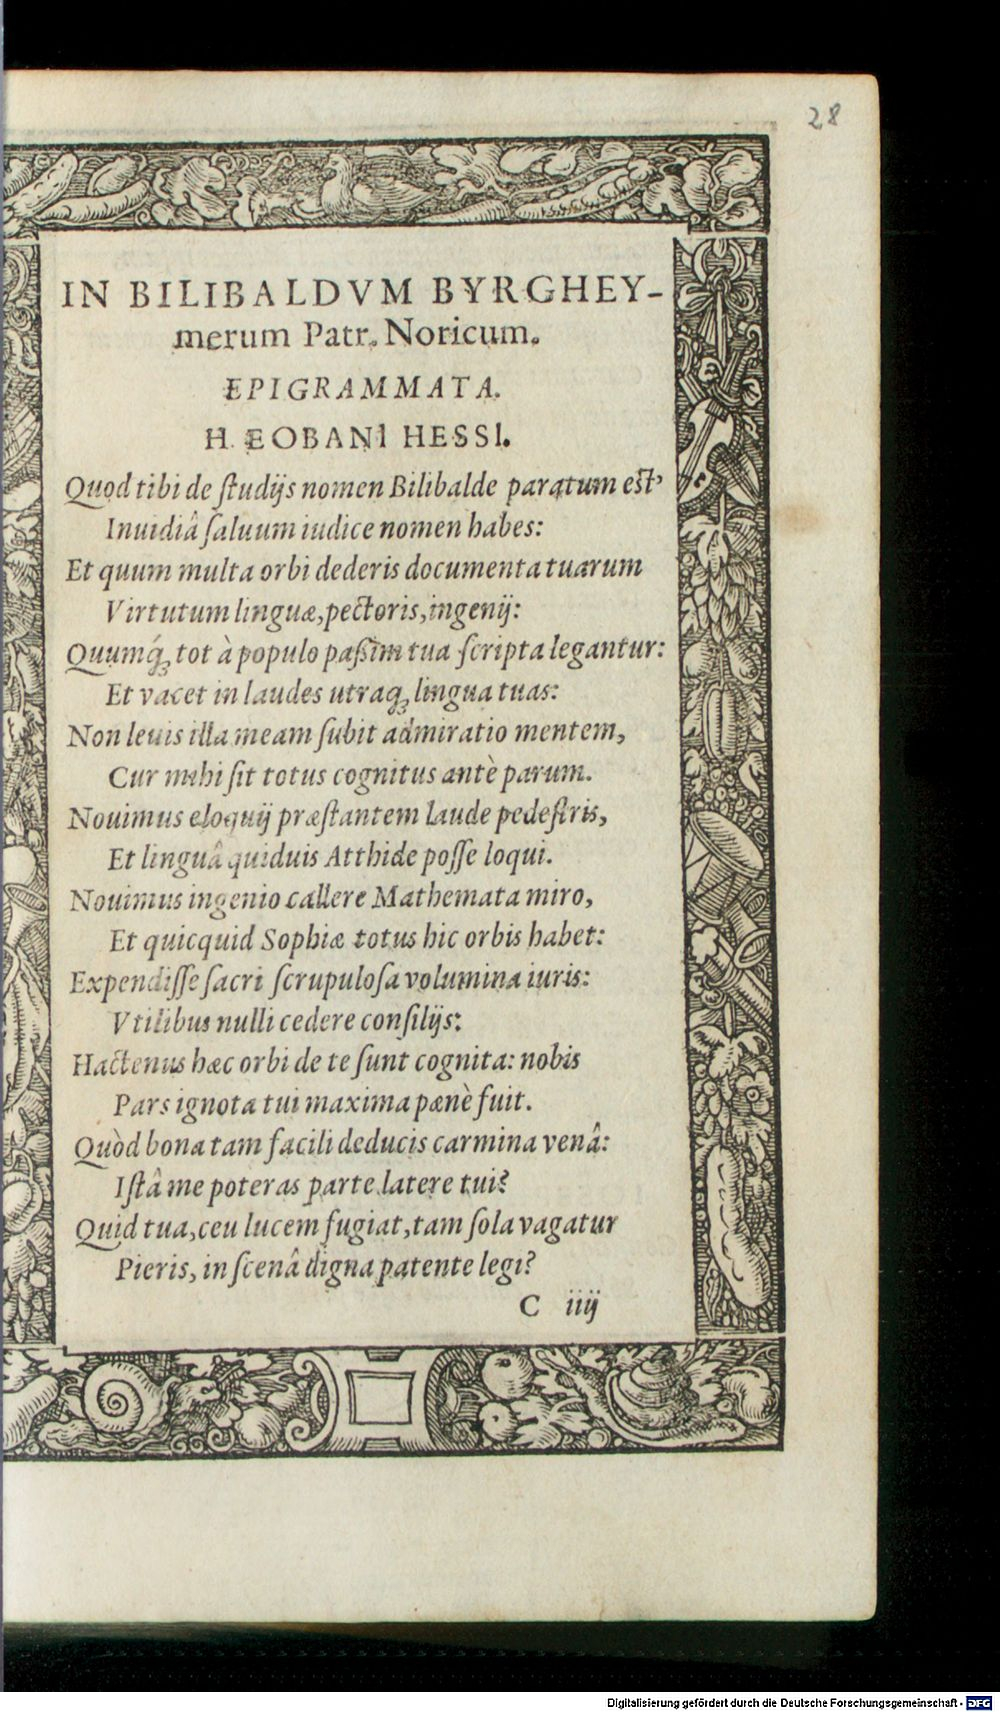 28
IN BILIBALDVM BYRGHEY-
merum Patr. Noricum.
EPIGRAMMATA.
H. EOBANI HESSI.
Quod tibi de ſtudijs nomen Bilibalde paratum eſt,
Inuidiâ ſaluum iudice nomen habes:
Et quum multa orbi dederis documenta tuarum
Virtutum linguæ, pectoris, ingenij:
Quumq́; tot à populo paßim tua ſcripta legantur:
Et vacet in laudes utraq; lingua tuas:
Non leuis illa meam ſubit admiratio mentem,
Cur mihi ſit totus cognitus antè parum.
Nouimus eloquij præſtantem laude pedeſtris,
Et linguâ quiduis Atthide poſſe loqui.
Nouimus ingenio callere Mathemata miro,
Et quicquid Sophiæ totus hic orbis habet:
Expendiſſe ſacri ſcrupuloſa volumina iuris:
Vtilibus nulli cedere conſilijs:
Hactenus hæc orbi de te ſunt cognita: nobis
Pars ignota tui maxima pænè fuit.
Quòd bona tam facili deducis carmina venâ:
Iſtâ me poteras parte latere tui?
Quid tua, ceu lucem fugiat, tam ſola vagatur
Pieris, in ſcenâ digna patente legi?
C iiij
Digitalisierung gefördert durch die Deutsche Forschungsgemeinschaft - DFG